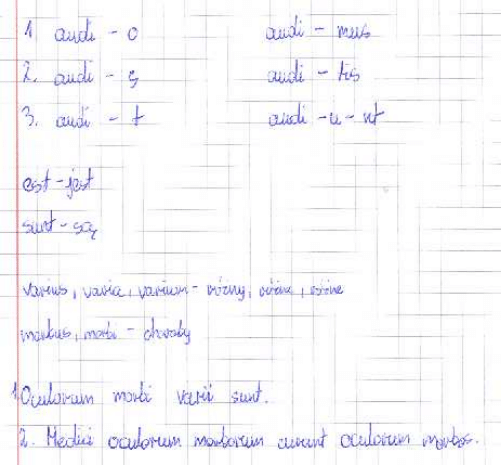 1. audi - o audi - mus
2. audi - s audi - tis
3. audi - t audi - u - nt
est - jest
sunt - są
varius, varia, varium - różny, różna, różne
morbus, morbi - choroby
1. Oculorum morbi varii sunt.
2. Medici oculorum morborum curant oculorum morbos.